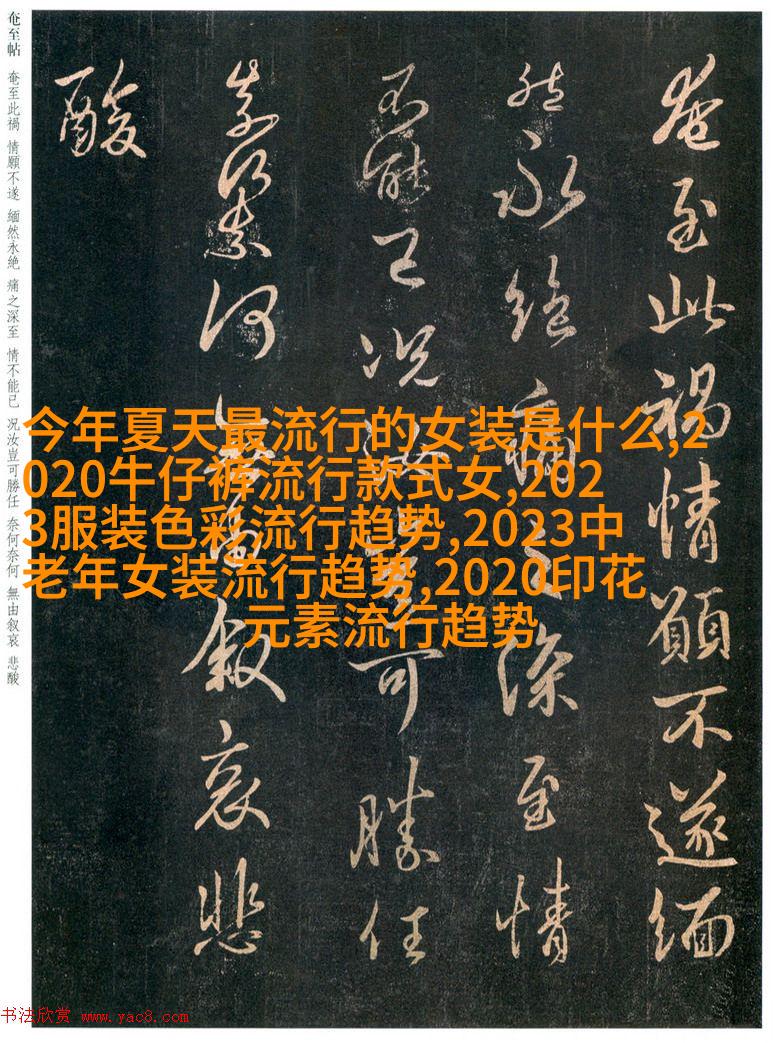 奄至帖 奄至此禍 情願不遂 緬然永絶 痛之深至 情不能已 况汝豈可勝任 奈何奈何 無由叙哀 悲酸
奄至此禍情願不遂緬
然永絶痛之深至情
不能已况汝豈可勝任
奈何奈何無由叙哀悲
酸
今年夏天最流行的女装是什么,2
020牛仔裤流行款式女,202
3服装色彩流行趋势,2023中
老年女装流行趋势,2020印花
元素流行趋势
书法欣赏 www.yac8.com